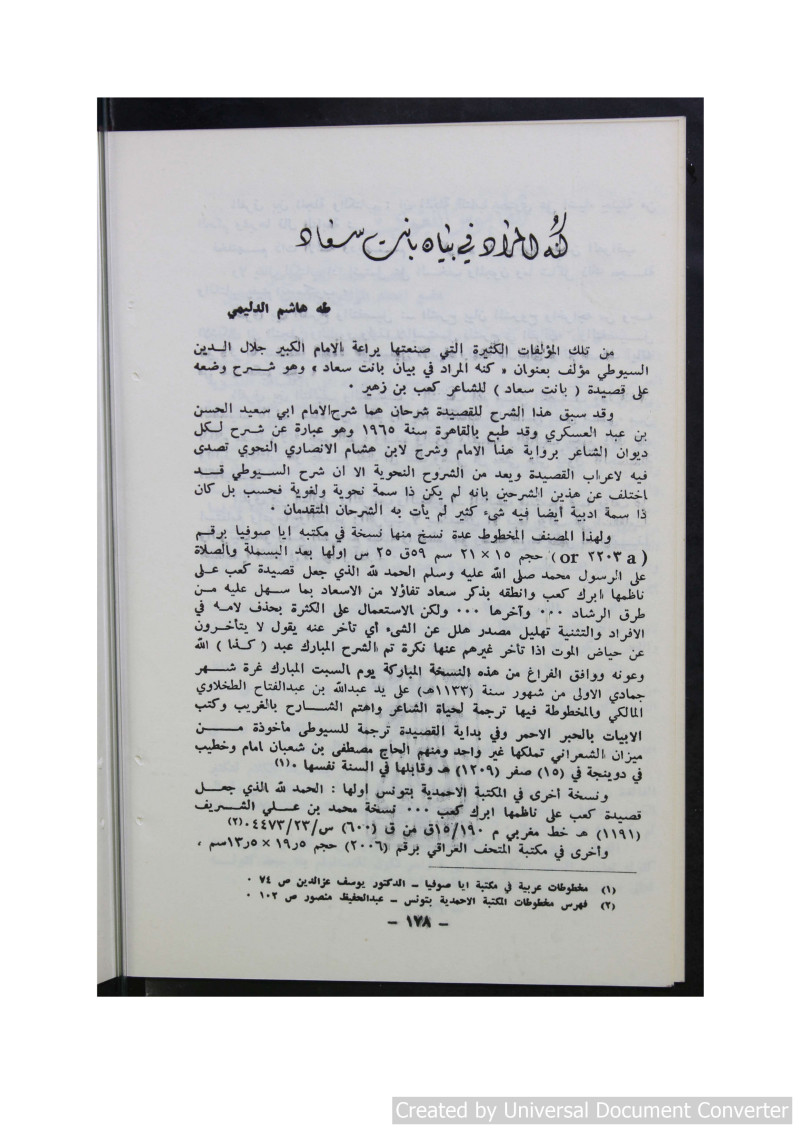 كنه المراد في بيان بانت سعاد
طه هاشم الدليمي
من تلك المؤلفات الكثيرة التي صنعتها يراعة الامام الكبير جلال الدين
السيوطي مؤلف بعنوان « كنه المراد في بيان بانت سعاد » وهو شرح وضعه
على قصيدة ( بانت سعاد ) للشاعر كعب بن زهير .
وقد سبق هذا الشرح للقصيدة شرحان هما شرح الامام ابي سعيد الحسن
بن عبد العسكري وقد طبع بالقاهرة سنة ١٩٦٥ وهو عبارة عن شرح لكل
ديوان الشاعر برواية هذا الامام وشرح لابن هشام الانصاري النحوي تصدى
فيه لاعراب القصيدة ويعد من الشروح النحوية الا ان شرح السيوطي قد
اختلف عن هذين الشرحين بانه لم يكن ذا سمة نحوية ولغوية فحسب بل كان
ذا سمة ادبية أيضا فيه شيء كثير لم يأت به الشرحان المتقدمان .
ولهذا المصنف المخطوط عدة نسخ منها نسخة في مكتبه ايا صوفيا برقم
( or ٢٢٠٣ a ) حجم ١٥ × ٢١ سم ٥٩ق ٢٥ س اولها بعد البسملة والصلاة
على الرسول محمد صلى الله عليه وسلم الحمد لله الذي جعل قصيدة كعب على
ناظمها ابرك كعب وانطقه بذكر سعاد تفاؤلا من الاسعاد بما سهل عليه من
طرق الرشاد ... وآخرها ... ولكن الاستعمال على الكثرة بحذف لامه في
الافراد والتثنية تهليل مصدر هلل عن الشيء أي تأخر عنه يقول لا يتأخرون
عن حياض الموت اذا تأخر غيرهم عنها نكرة تم الشرح المبارك عبد ( كذا ) الله
وعونه ووافق الفراغ من هذه النسخة المباركة يوم السبت المبارك غرة شهر
جمادي الاولى من شهور سنة (١١٣٣هـ) على يد عبدالله بن عبدالفتاح الطخلاوي
المالكي والمخطوطة فيها ترجمة لحياة الشاعر واهتم الشارح بالغريب وكتب
الابيات بالحبر الاحمر وفي بداية القصيدة ترجمة للسيوطي مأخوذة من
ميزان الشعراني تملكها غير واحد ومنهم الحاج مصطفى بن شعبان امام وخطيب
في دوينجة في (١٥) صفر (١٢٠٩) هـ وقابلها في السنة نفسها .(١)
ونسخة أخرى في المكتبة الاحمدية بتونس أولها : الحمد لله الذي جعل
قصيدة كعب على ناظمها ابرك كعب ... نسخة محمد بن علي الشريف
(١١٩١) هـ خط مغربي م ١٥/١٩٠ق من ق (٦٠٠) س/٢٣/٤٤٧٣.(٢)
وأخرى في مكتبة المتحف العراقي برقم (٢٠٠٦) حجم ١٩٫٥ × ١٣٫٥سم ،
(١) مخطوطات عربية في مكتبة ايا صوفيا - الدكتور يوسف عزالدين ص ٧٤ .
(٢) فهرس مخطوطات المكتبة الاحمدية بتونس - عبدالحفيظ منصور ص ١٠٢ .
- ١٧٨ -
Created by Universal Document Converter